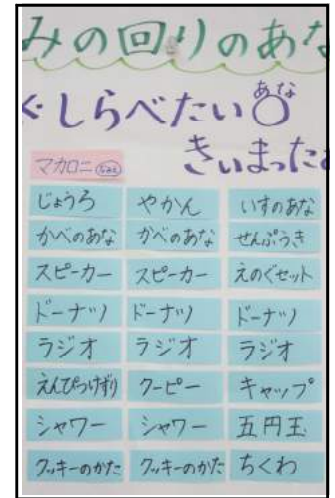 みの回りのあな
くしらべたいあな
きいまったよ
マカロニ
じょうろ やかん いすのあな
かべのあな かべのあな せんぷうき
スピーカー スピーカー えのぐセット
ドーナツ ドーナツ ドーナツ
ラジオ ラジオ ラジオ
えんぴつけずり クーピー キャップ
シャワー シャワー 五円玉
クッキーのかた クッキーのかた ちくわ